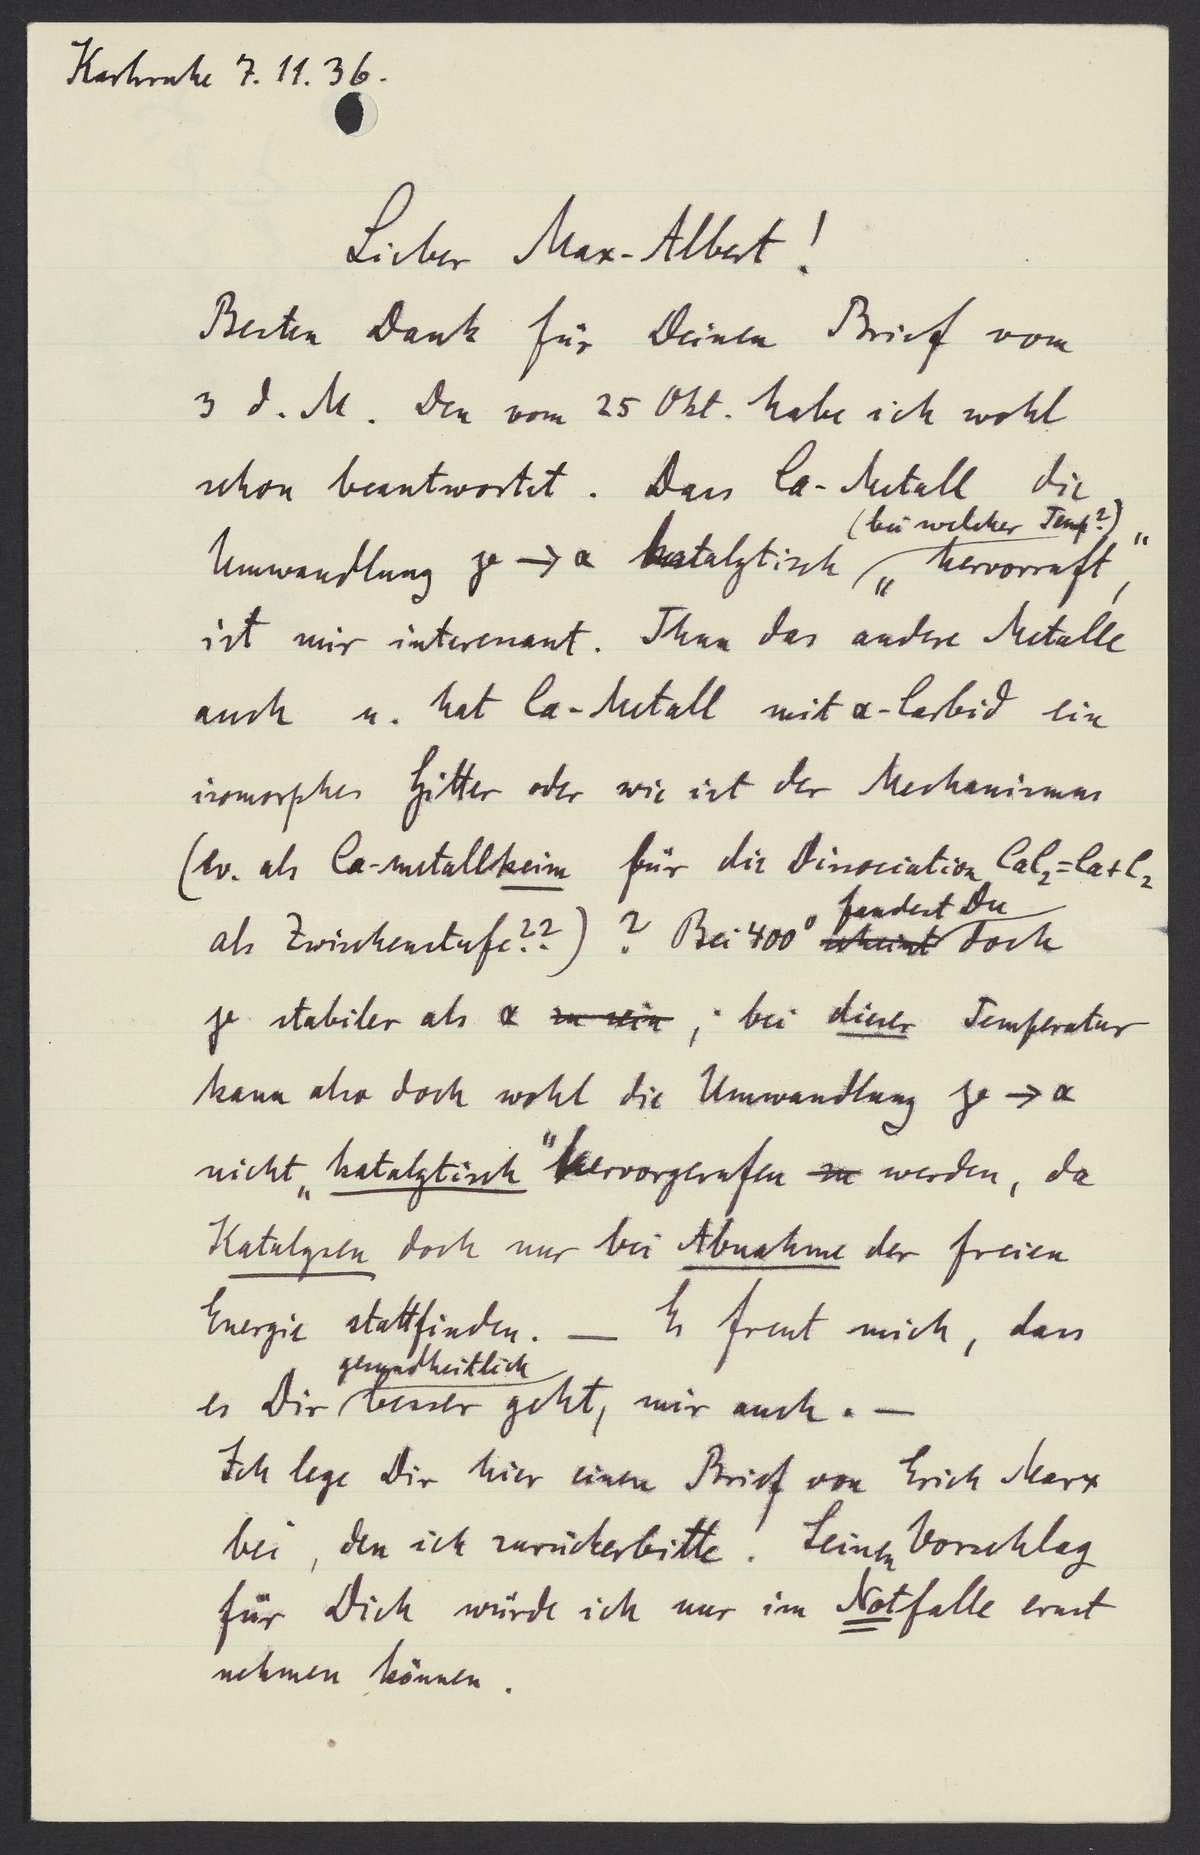 Karlsruhe 7. 11. 36.
Lieber Max-Albert!
Besten Dank für Deinen Brief vom
3 d. M. Den vom 25 Okt. habe ich wohl
schon beantwortet. Dass Ca-Metall die
(bei welcher Temp?)
Umwandlung γ → α katalytisch „hervorruft“,
ist mir interessant. Thun das andere Metalle
auch u. hat Ca-Metall mit α-Carbid ein
isomorphes Gitter oder wie ist der Mechanismus
(ev. als Ca-metallkeim für die Dissociation CaC₂=Ca+C₂
fandest Du
als Zwischenstufe??)? Bei 400° scheint doch
γ stabiler als α zu sein; bei dieser Temperatur
kann also doch wohl die Umwandlung γ → α
nicht „katalytisch“ hervorgerufen zu werden, da
Katalysen doch nur bei Abnahme der freien
Energie stattfinden. — Es freut mich, dass
gesundheitlich
es Dir besser geht, mir auch. —
Ich lege Dir hier einen Brief von Erich Marx
bei, den ich zurückerbitte. Seinen Vorschlag
für Dich würde ich nur im Notfalle ernst
nehmen können.